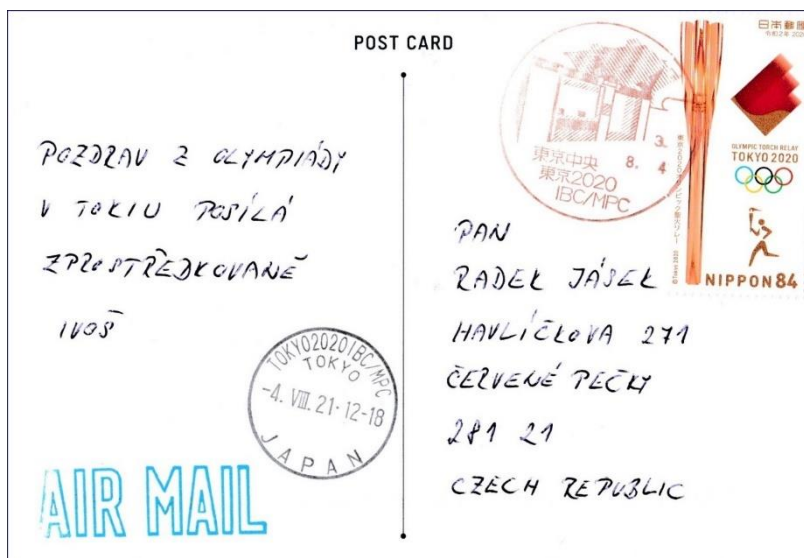 POST CARD
POZDRAV Z OLYMPIÁDY
V TOKIU POSÍLÁ
ZPROSTŘEDKOVANĚ
IVOŠ
TOKYO2020IBC/MPC
TOKYO
-4. VIII. 21・12-18
JAPAN
AIR MAIL
3.
8. 4
東京中央
東京2020
IBC/MPC
日本郵便
令和2年 2020
OLYMPIC TORCH RELAY
TOKYO 2020
東京2020オリンピック聖火リレー
©Tokyo 2020
NIPPON 84
PAN
RADEK JÁSEK
HAVLÍČKOVA 271
ČERVENÉ PEČKY
281 21
CZECH REPUBLIC